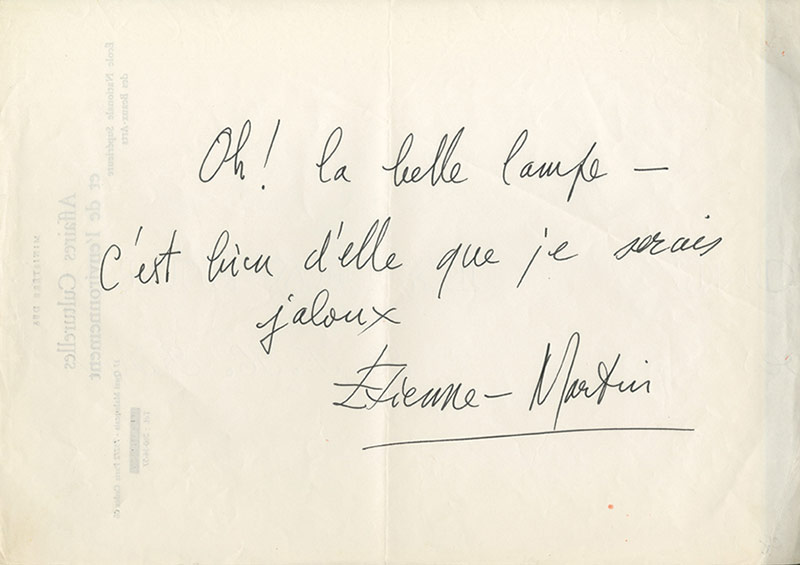 Oh! la belle lampe —
C'est bien d'elle que je serais
jaloux
Étienne-Martin
MINISTÈRE DES
Affaires Culturelles
et de l'environnement
École Nationale Supérieure
des Beaux-Arts
Quai Malaquais